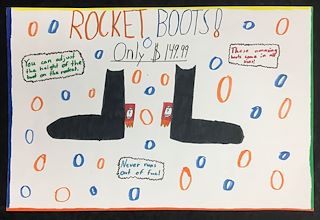 ROCKET BOOTS!
Only $149.99
You can adjust
the height of the
boot on the rocket.
These amazing
boots come in all
sizes!
Never runs
out of fuel